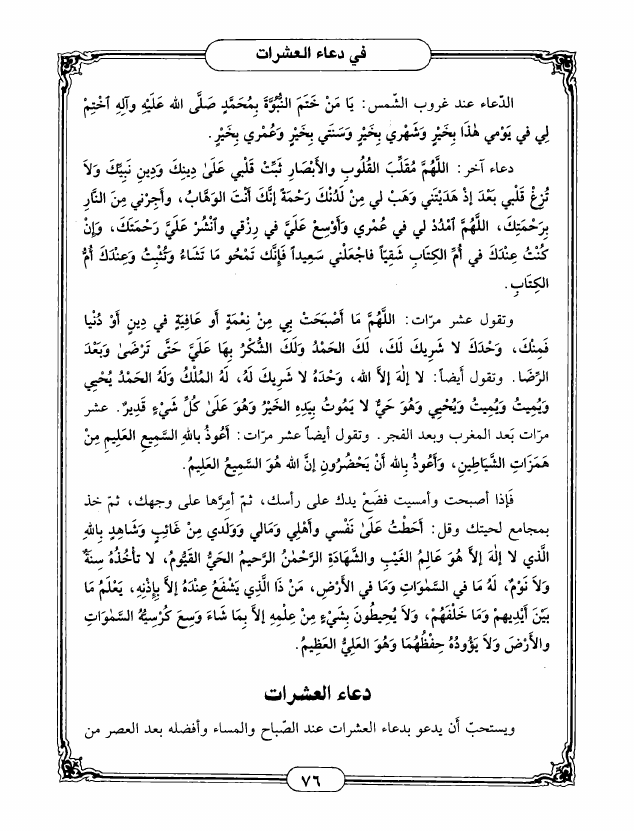 في دعاء العشرات
الدّعاء عند غروب الشّمس: يَا مَنْ خَتَمَ النُّبُوَّةَ بِمُحَمَّدٍ صَلَّى الله عَلَيْهِ وآلِهِ اَخْتِمْ
لِي فِي يَوْمِي هٰذَا بِخَيْرٍ وَشَهْرِي بِخَيْرٍ وَسَنَتِي بِخَيْرٍ وَعُمْرِي بِخَيْرٍ.
دعاء آخر: اللَّهُمَّ مُقَلِّبَ القُلُوبِ والأَبْصَارِ ثَبِّتْ قَلْبِي عَلَىٰ دِينِكَ وَدِينِ نَبِيِّكَ وَلَا
تُزِغْ قَلْبِي بَعْدَ إِذْ هَدَيْتَنِي وَهَبْ لِي مِنْ لَدُنْكَ رَحْمَةً إنَّكَ أَنْتَ الوَهَّابُ، وأَجِرْنِي مِنَ النَّارِ
بِرَحْمَتِكَ، اللَّهُمَّ آمْدُدْ لِي فِي عُمْرِي وَأَوْسِعْ عَلَيَّ فِي رِزْقِي وآنْشُرْ عَلَيَّ رَحْمَتَكَ، وَإِنْ
كُنْتُ عِنْدَكَ فِي أُمِّ الكِتَابِ شَقِيّاً فاجْعَلْنِي سَعِيداً فَإِنَّكَ تَمْحُو مَا تَشَاءُ وَتُثْبِتُ وَعِنْدَكَ أُمُّ
الكِتَابِ.
وتقول عشر مرّات: اللَّهُمَّ مَا أَصْبَحَتْ بِي مِنْ نِعْمَةٍ أَو عَافِيَةٍ فِي دِينٍ أَوْ دُنْيا
فَمِنْكَ، وَحْدَكَ لا شَرِيكَ لَكَ، لَكَ الحَمْدُ وَلَكَ الشُّكْرُ بِهَا عَلَيَّ حَتَّى تَرْضَىٰ وَبَعْدَ
الرِّضَا. وتقول أيضاً: لا إلٰهَ إلاَّ الله، وَحْدَهُ لا شَرِيكَ لَهُ، لَهُ المُلْكُ وَلَهُ الحَمْدُ يُحْيِي
وَيُمِيتُ وَيُمِيتُ وَيُحْيِي وَهُوَ حَيٌّ لا يَمُوتُ بِيَدِهِ الخَيْرُ وَهُوَ عَلَىٰ كُلِّ شَيْءٍ قَدِيرٌ. عشر
مرّات بَعد المغرب وبعد الفجر. وتقول أيضاً عشر مرّات: أَعُوذُ باللهِ السَّمِيعِ العَلِيمِ مِنْ
هَمَزَاتِ الشَّيَاطِينِ، وَأَعُوذُ بالله أَنْ يَحْضُرُونِ إنَّ الله هُوَ السَّمِيعُ العَلِيمُ.
فَإذا أصبحت وأمسيت فضَعْ يدك على رأسك، ثمّ أمِرَّها على وجهك، ثمّ خذ
بمجامع لحيتك وقل: أَحَطْتُ عَلَىٰ نَفْسِي وأَهْلِي وَمَالِي وَوَلَدِي مِنْ غَائِبٍ وَشَاهِدٍ بِاللهِ
الَّذِي لا إلٰهَ إلاَّ هُوَ عَالِمُ الغَيْبِ والشَّهَادَةِ الرَّحْمٰنُ الرَّحِيمُ الحَيُّ القَيُّومُ، لا تأخُذُهُ سِنَةٌ
وَلَا نَوْمٌ، لَهُ مَا فِي السَّمٰوَاتِ وَمَا فِي الأَرْضِ، مَنْ ذَا الَّذِي يَشْفَعُ عِنْدَهُ إلاَّ بِإذْنِهِ، يَعْلَمُ مَا
بَيْنَ أَيْدِيهِمْ وَمَا خَلْفَهُمْ، وَلَا يُحِيطُونَ بِشَيْءٍ مِنْ عِلْمِهِ إلاَّ بِمَا شَاءَ وَسِعَ كُرْسِيُّهُ السَّمٰوَاتِ
والأَرْضَ وَلَا يَؤُودُهُ حِفْظُهُمَا وَهُوَ العَلِيُّ العَظِيمُ.
دعاء العشرات
ويستحبّ أن يدعو بدعاء العشرات عند الصّباح والمساء وأفضله بعد العصر من
٧٦